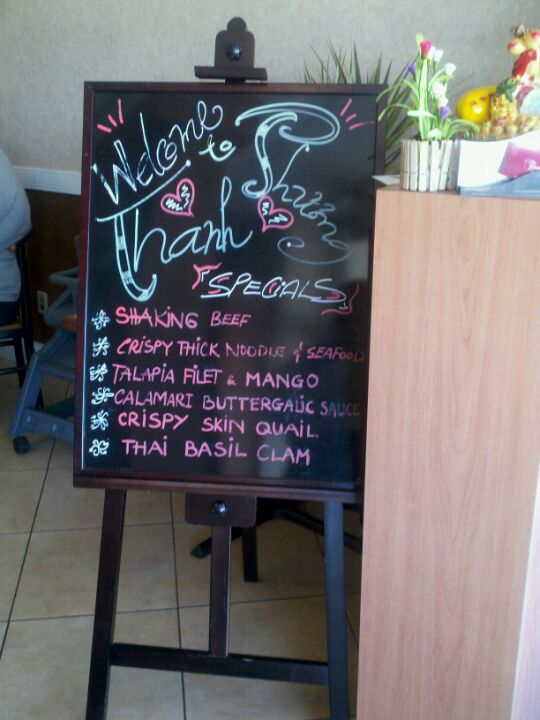 Welcome to
Thanh Phương
SPECIALS
SHAKING BEEF
CRISPY THICK NOODLE & SEAFOOD
TALAPIA FILET & MANGO
CALAMARI BUTTERGALIC SAUCE
CRISPY SKIN QUAIL.
THAI BASIL CLAM